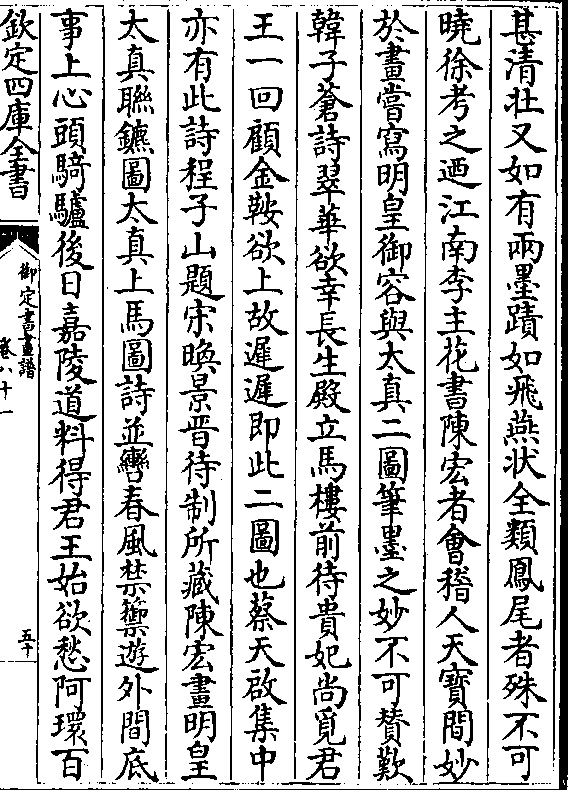 甚清壮又如有兩墨蹟如飛燕状全類鳳尾者殊不可
曉徐考之廼江南李主花書陳宏者會稽人天寶間妙
於畫嘗寫明皇御容與太真二圖筆墨之妙不可賛歎
韓子蒼詩翠華欲幸長生殿立馬樓前待貴妃尚覓君
王一回顧金鞍欲上故遲遲即此二圖也蔡天啟集中
亦有此詩程子山題宋喚景晋待制所藏陳宏畫明皇
太真聯鑣圖太真上馬圖詩並轡春風禁籞遊外間底
事上心頭騎驢後日嘉陵道料得君王始欲愁阿環百
欽定四庫全書
御定書畫譜
卷八十一
五十